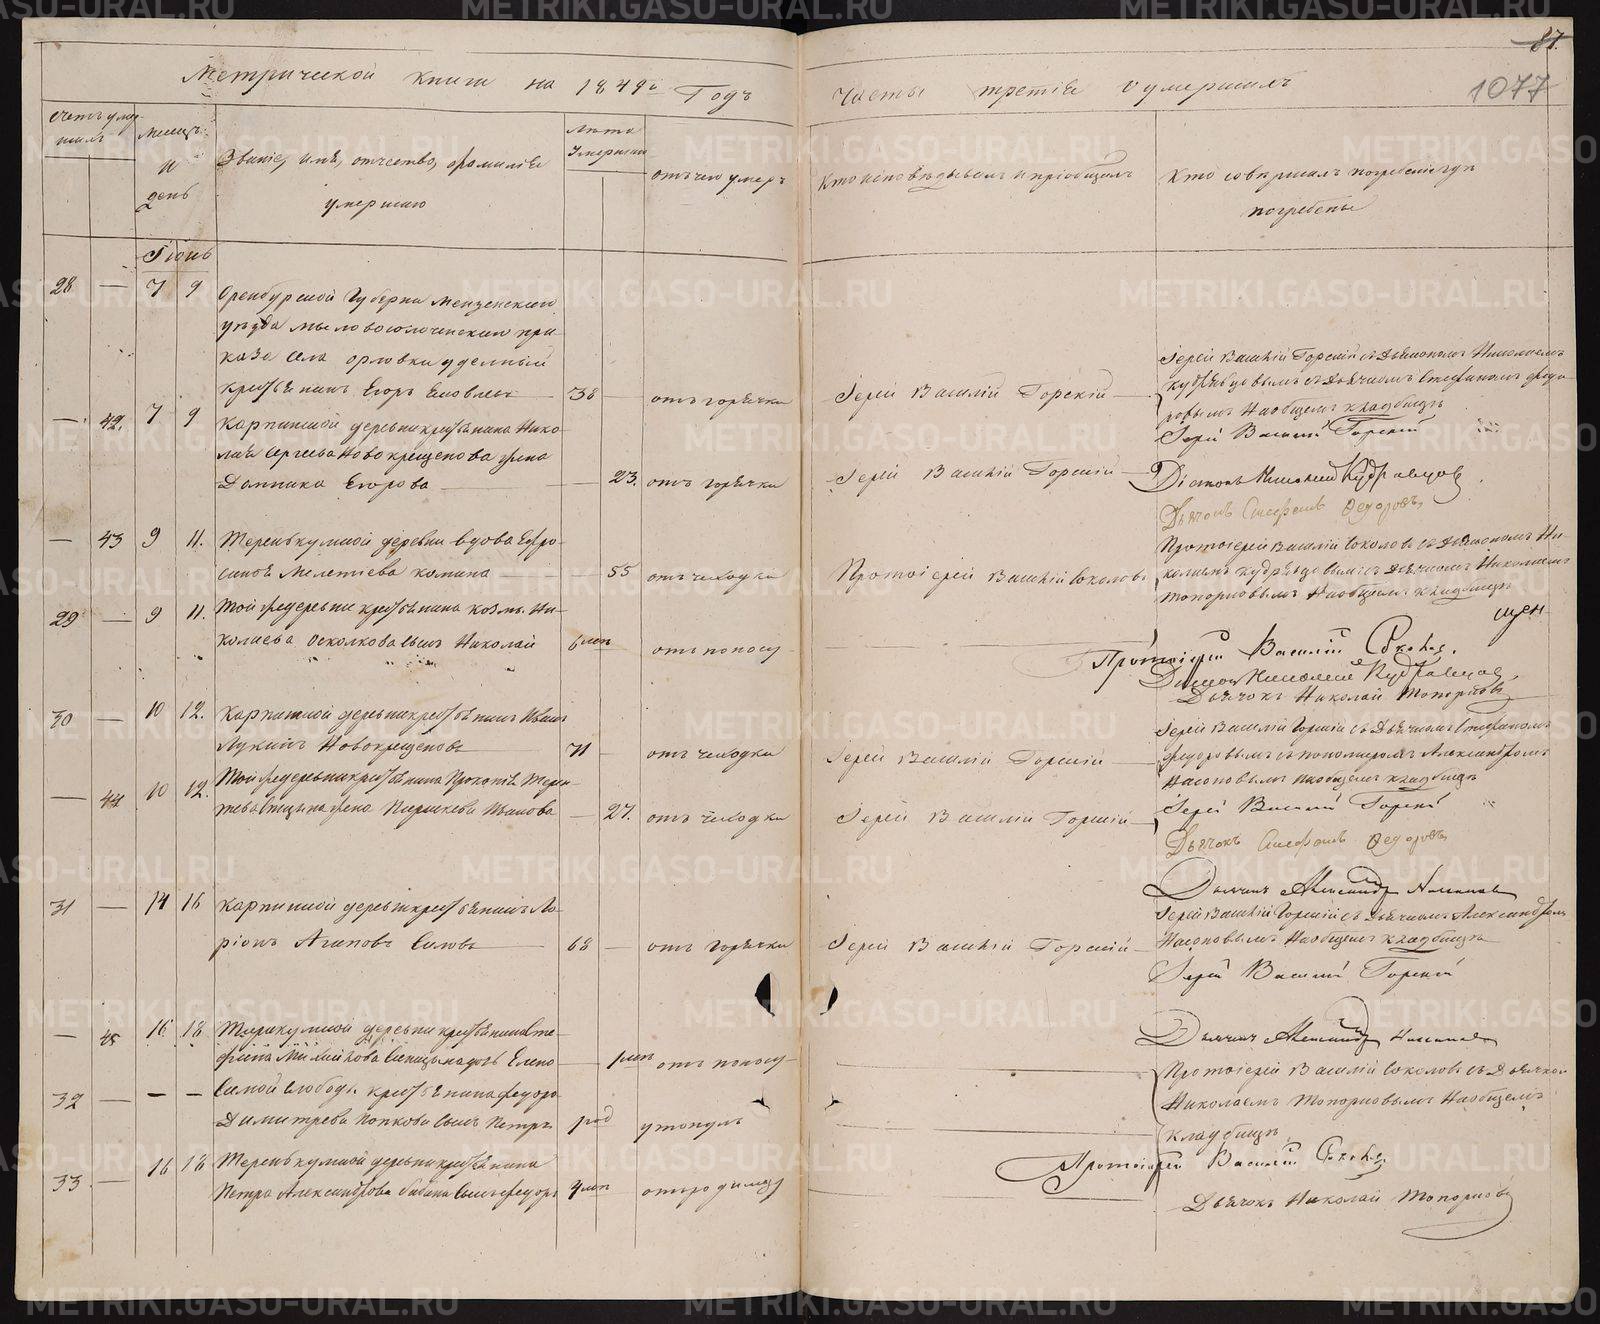 87.
1077
Метрической книги на 1849й Годъ
Часть третiя о умершихъ
Счетъ умершихъ
Месяцъ и день
Званiе, имя, отчество, фамилiя умершаго
лета умершаго
отъ чего умеръ
Кто исповедывалъ и прiобщалъ
Кто совершалъ погребенiе и где погребены
Iюнь
28 — 7 9 Оренбургской Губернiи Мензелинского
уезда
каза села орловки удельный
крестьянинъ Егоръ Яковлевъ 38 отъ горячки Iерей Василiй Горскiй
Iерей Василiй Горскiй съ Дiакономъ Николаемъ
Кудрявцовымъ съ Дьячкомъ Стефаномъ Федо-
ровымъ На общемъ кладбище
— 42. 7 9 Карпиной деревни крестьянина Нико-
лая Сергеева Новокрещенова жена
Домника Егорова — 23. отъ горячки Iерей Василiй Горскiй
Iерей Василiй Горскiй
Дiаконъ Николай Кудрявцовъ
Дьячокъ Стефанъ Федоровъ
— 43 9 11. Теренкулской деревни вдова Ефро-
синья Мелетiева — 55 отъ чахотки Протоiерей Василiй Соколовъ
Протоiерей Василiй Соколовъ съ Дiакономъ Ни-
колаемъ Кудрявцовымъ съ Дьячкомъ Николаемъ
Топорковымъ На общемъ кладбище
29 — 9 11. Той же деревни крестьянина Козмы Ни-
колаева Осколкова сынъ Николай 6 мец отъ поносу
Протоiерей Василiй Соколовъ.
Дiаконъ Николай Кудрявцовъ
Дьячокъ Николай Топорковъ
30 — 10 12. Карпиной деревни крестьянинъ Иванъ
Лукинъ Новокрещеновъ 71 — отъ чахотки Iерей Василiй Горскiй
Iерей Василiй Горскiй съ Дьячкомъ Стефаномъ
Федоровымъ съ пономаремъ Александромъ
На общемъ кладбище
— 44 10 12. Той же деревни крестьянина Прокопiя
жена Параскева Иванова — 27. отъ чахотки Iерей Василiй Горскiй
Iерей Василiй Горскiй
Дьячокъ Стефанъ Федоровъ
31 — 14 16 Карпиной деревни крестьянинъ Ла-
рiонъ Агаповъ Силовъ 68 — отъ горячки Iерей Василiй Горскiй
Iерей Василiй Горскiй съ Дьячкомъ Александромъ
На общемъ кладбище
Iерей Василiй Горскiй
— 45 16 18 Теренкулской деревни крестьянина Сте-
фана дочь Елена — 1 мец отъ поносу
Протоiерей Василiй Соколовъ съ Дьячкомъ
Николаемъ Топорковымъ На общемъ
кладбище
32 — — — Самой Слободы крестьянина Федора
Димитрева Попкова сынъ Петръ 1 год утонулъ
33. — 16 18 Теренкулской деревни крестьянина
Петра Александрова Бабина сынъ Федоръ 4 мец отъ родимцу
Протоiерей Василiй Соколовъ
Дьячокъ Николай Топорковъ
METRIKI.GASO-URAL.RU